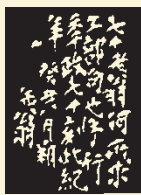 七十老翁何所求
工部句也行
年政七十此紀
年 癸丑月朔
缶翁